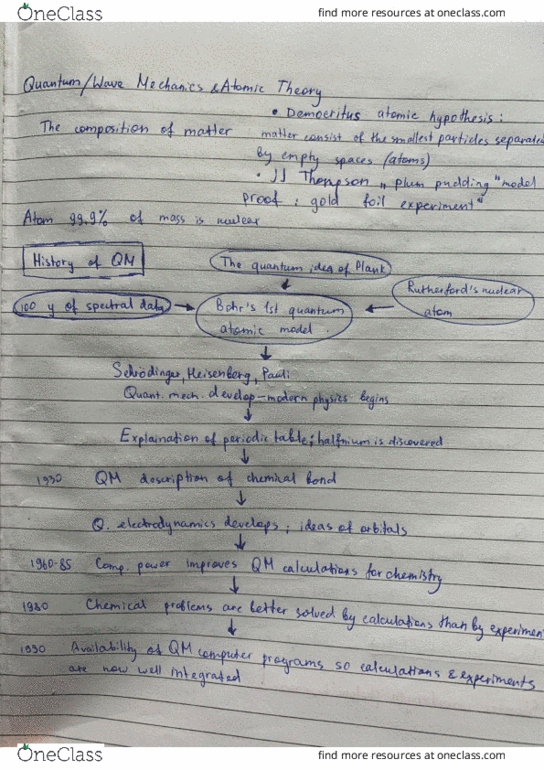 OneClass
find more resources at oneclass.com
Quantum/Wave Mechanics & Atomic Theory
• Democritus atomic hypothesis:
The composition of matter
matter consist of the smallest particles separated
by empty spaces (atoms)
• JJ Thompson „ plum pudding" model
Proof: gold foil experiment"
Atom 99.9% of mass is nuclear
History of QM
The quantum idea of Plank
Rutherford's nuclear
atom
100 y of spectral data
Bohr's 1st quantum
atomic model.
Schrödinger, Heisenberg, Pauli
Quant. mech. develop - modern physics begins
Explaination of periodic table; halfnium is discovered
1930 QM description of chemical bond
Q. electrodynamics develops; ideas of orbitals
1960-85 Comp. power improves QM calculations for chemistry
1980 Chemical problems are better solved by calculations than by experimen
1990 Availability of QM computer programs, so calculations & experiments
are now well integrated
OneClass
find more resources at oneclass.com